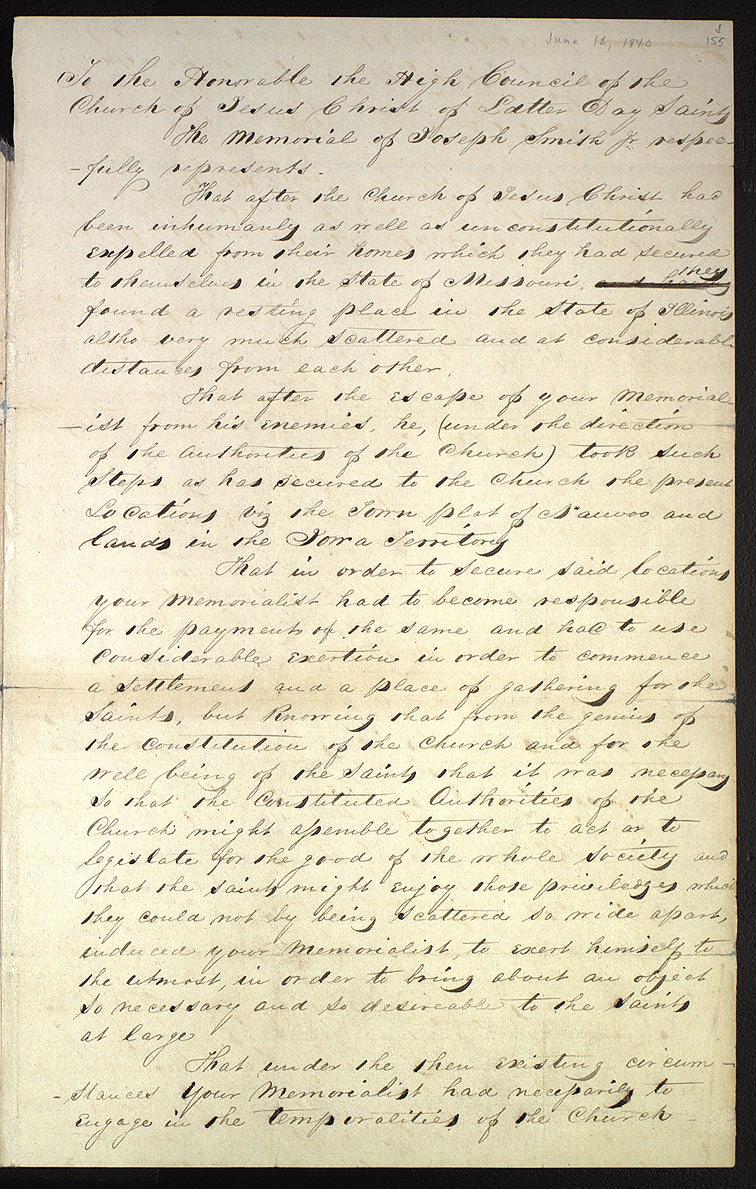 June 18, 1840
155
To the Honorable the High Council of the
Church of Jesus Christ of Latter Day Saints
The Memorial of Joseph Smith Jr respec-
-fully represents.
That after the Church of Jesus Christ had
been inhumanly as well as unconstitutionally
expelled from their homes which they had secured
to themselves in the State of Missouri, and having they
found a resting place in the State of Illinois
altho very much scattered and at considerable
distances from each other,
That after the escape of your Memorial
-ist from his enemies, he, (under the direction
of the Authorities of the Church) took such
steps as has secured to the Church the present
Locations viz the Town plat of Nauvoo and
lands in the Iowa Territory
That in order to secure said locations
your Memorialist had to become responsible
for the payments of the same and had to use
considerable exertion in order to commence
a settlement and a place of gathering for the
Saints, but knowing that from the genius of
the constitution of the Church and for the
well being of the Saints that it was necessary
so that the Constituted Authorities of the
Church might assemble together to act or to
legislate for the good of the whole society and
that the saints might enjoy those priviledges which
they could not by being scattered so wide apart,
induced your Memorialist, to exert himself to
the utmost, in order to bring about an object
so necessary and so desireable to the Saints
at large
That under the then existing circum-
-stances your Memorialist had necessarily to
engage in the temporalities of the Church